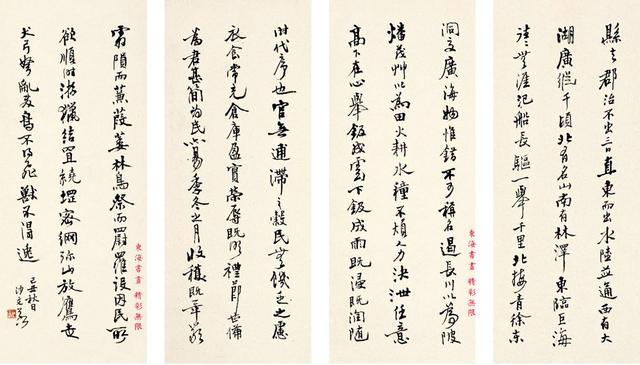 縣去郡治不出三日直東而出水陸並通西有大
湖廣縱千頃北有名山南有林澤東臨巨海
往往無涯汜船長驅一舉千里北接青徐東
洞交廣海物惟錯不可稱名遏長川以為陂
燔茂草以為田火耕水種不煩人力決泄任意
高下在心舉鈒成雲下鈒成雨既浸既潤隨
東海書畫 精彩無限
时代序也官無逋滯之穀民無饑乏之慮
衣食常充倉庫盈實榮辱既明禮節甚備
為君甚简為民亦易季冬之月收穫既畢嚴
霜隕而蒹葭萎林鳥祭而罻羅設因民所
欲順時游獵結罝繞堽密網弥山放鷹走
犬弓弩亂發鳥不得飛獸不得逸
秋日
東海書畫 精彩無限